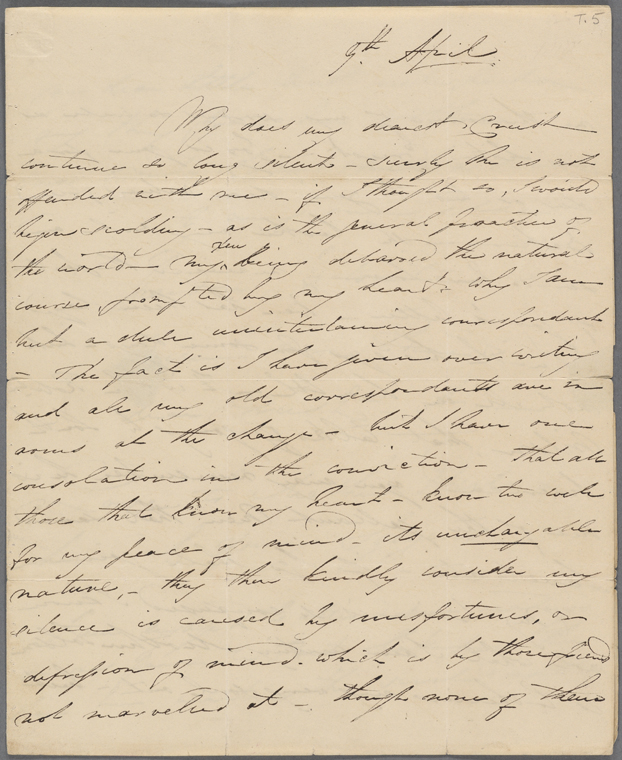 T.5
9th April.
Why does my dearest Crush
continue so long silent – surely she is not
offended with me – if I thought so, I would
begin scolding – as is the general practice of
the world – my being debarred the natural
course, prompted by my heart: why I am
but a dull unentertaining correspondent
– The fact is I have given over writing
and all my old correspondents are in
arms at the change – but I have one
consolation in the conviction – that all
those that know my heart – know too well
for my peace of mind – its unchangable
nature, – they then kindly consider my
silence is caused by misfortunes, or
depression of mind – which is by those friends
not marvelled at – though none of them